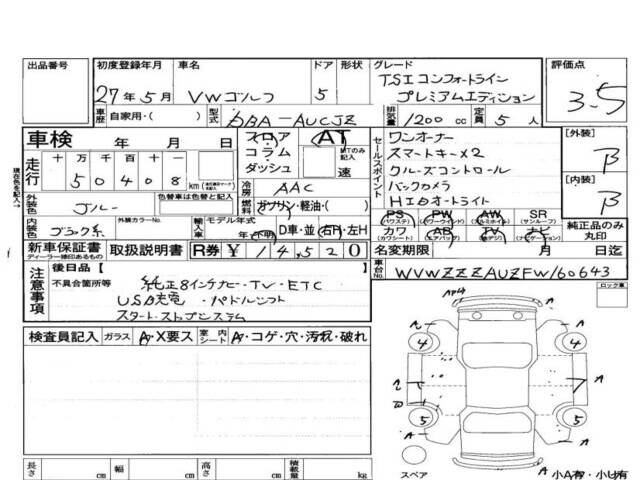 出品番号 初度登録年月 車名 ドア 形状 グレード 評価点
27年5月 VWゴルフ 5 TSIコンフォートライン
プレミアムエディション
3.5
車歴 自家用・( ) 型式 DBA-AUCJZ 排気量 1200 cc 定員 5 人
車検 年 月 日 フロア AT
コラム MTのみ記入
ダッシュ 速
走行 十 万 千 百 十 一
50408 km
冷房 AAC
燃料 ガソリン・軽油・( )
外装色 ブルー 色替車は色替と記入
内装色 ブラック系 外装カラーNo. 輸入車 モデル年式
年・不明 D車・並 右H・左H
セールスポイント
ワンオーナー
スマートキー×2
クルーズコントロール
バックカメラ
HIDオートライト
[外装]
B
[内装]
B
PS (パワステ) PW (パワーウインド) AW (アルミホイル) SR (サンルーフ)
カワ (カワシート) AB (エアバッグ) TV (地デジ) ナビ (ナビゲーション)
純正品のみ丸印
新車保証書 ディーラー様印のあるもの 取扱説明書 R券 ¥ 14,520 名変期限 月 日迄
車台No. WVWZZZAUZFW160643
現在色を記入→
注意事項
後日品 [ ]
不具合箇所等 純正8インチナビ・TV・ETC
USB充電・パドルシフト
スタートストップシステム
ロック車
検査員記入 ガラス A・X要ス 室内シート A・コゲ・穴・汚れ・破れ
A
4 4
A
5 5
スペア A A 小A有・小U有
長さ cm 幅 cm 高さ cm 積載量 kg